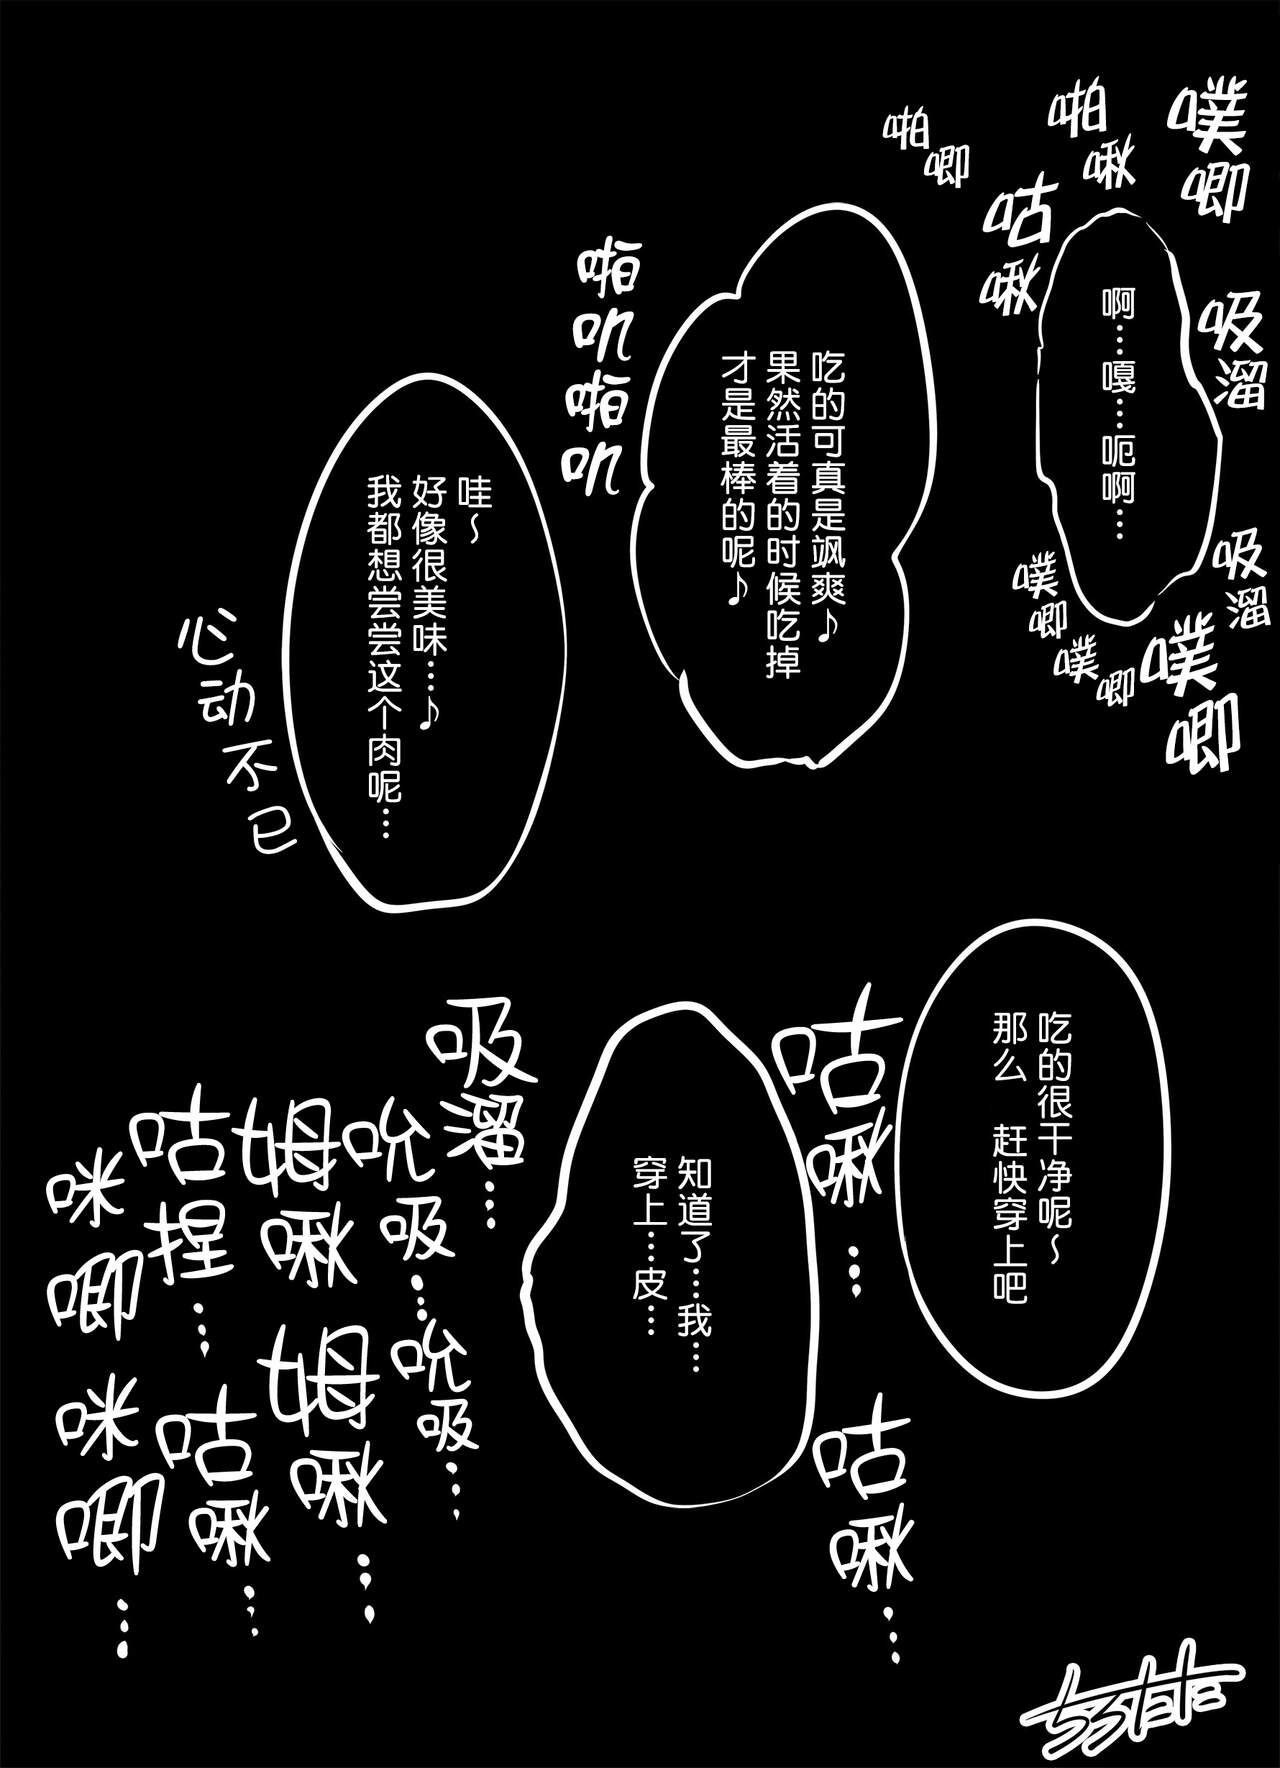 噗唧
啪啾
啪唧
咕啾
吸溜
啊…嘎…呃啊…
吸溜
噗唧
噗唧
噗唧
吃的可真是飒爽♪
果然活着的时候吃掉
才是最棒的呢♪
啪叽啪叽
哇～
好像很美味…♪
我都想尝尝这个肉呢…
心动不已
吃的很干净呢～
那么 赶快穿上吧
咕啾…
咕啾…
知道了…我…
穿上…皮…
吸溜…
吮吸…
吮吸…
姆啾
姆啾…
咕捏…
咕啾…
咪唧
咪唧…
ちろたた